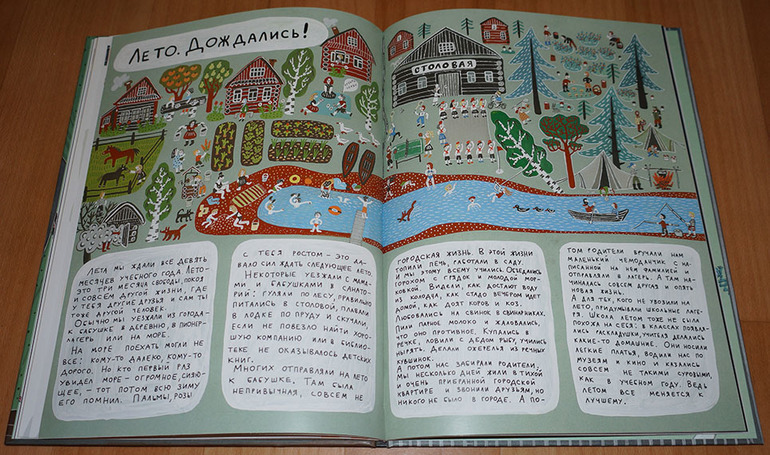 Лето. Дождались!
СТОЛОВАЯ
Лета мы ждали все девять
месяцев учебного года. Лето-
это три месяца свободы, покоя
и совсем другой жизни, где
у тебя другие друзья и сам ты
тоже другой человек.
Обычно мы уезжали из города-
к бабушке в деревню, в пионер-
лагерь или на море.
На море поехать могли не
все: кому-то далеко, кому-то
дорого. Но кто первый раз
увидел море - огромное, сияю-
щее, - тот потом всю зиму
его помнил. Пальмы, розы
с тебя ростом - это да-
вало сил ждать следующее лето.
Некоторые уезжали с мама-
ми и бабушками в санато-
рий: гуляли по лесу, правильно
питались в столовой, плавали
в лодке по пруду и скучали,
если не повезло найти хоро-
шую компанию или в библио-
теке не оказывалось детских
книг.
Многих отправляли на лето
к бабушке. Там была
непривычная, совсем не
городская жизнь. В этой жизни
топили печь, работали в саду.
И мы этому всему учились. Объедались
горохом с грядок и молодой мор-
ковкой. Видели, как достают воду
из колодца, как стадо вечером идет
домой, как доят коров и коз.
Любовались на свинок в свинарниках.
Пили парное молоко и жаловались,
что оно противное. Купались в
речке, ловили с дедом рыбу, учились
нырять. Делали ожерелья из речных
кувшинок.
А потом нас забирали родители.
Мы несколько дней жили в тихой
и очень прибранной городской
квартире и звонили друзьям, но
никого не было в городе. А по-
том родители вручали нам
маленький чемоданчик с на-
писанной на нем фамилией и
отправляли в лагерь. А там на-
чиналась совсем другая и опять
новая жизнь.
А для тех, кого не увозили на
лето, придумывали школьные лаге-
ря. Школа летом тоже не была
похожа на себя: в классах появля-
лись раскладушки, учителя делались
какие-то домашние. Они носили
легкие платья, водили нас по
музеям и кино и казались
совсем не такими суровыми,
как в учебном году. Ведь
летом все меняется к
лучшему.